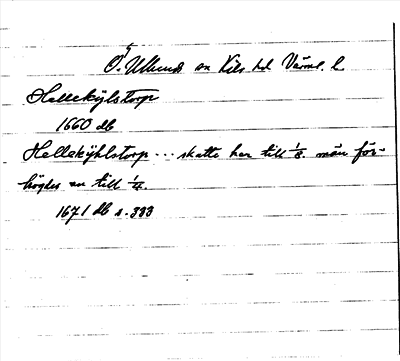 Ö. Ullerud sn Kils hd Värml. l.
Hellekijlstorp
1660 db
Hellekijhlstorp ... skatte har till 1/8. män för-
högdes en till 1/4.
1671 db s. 333